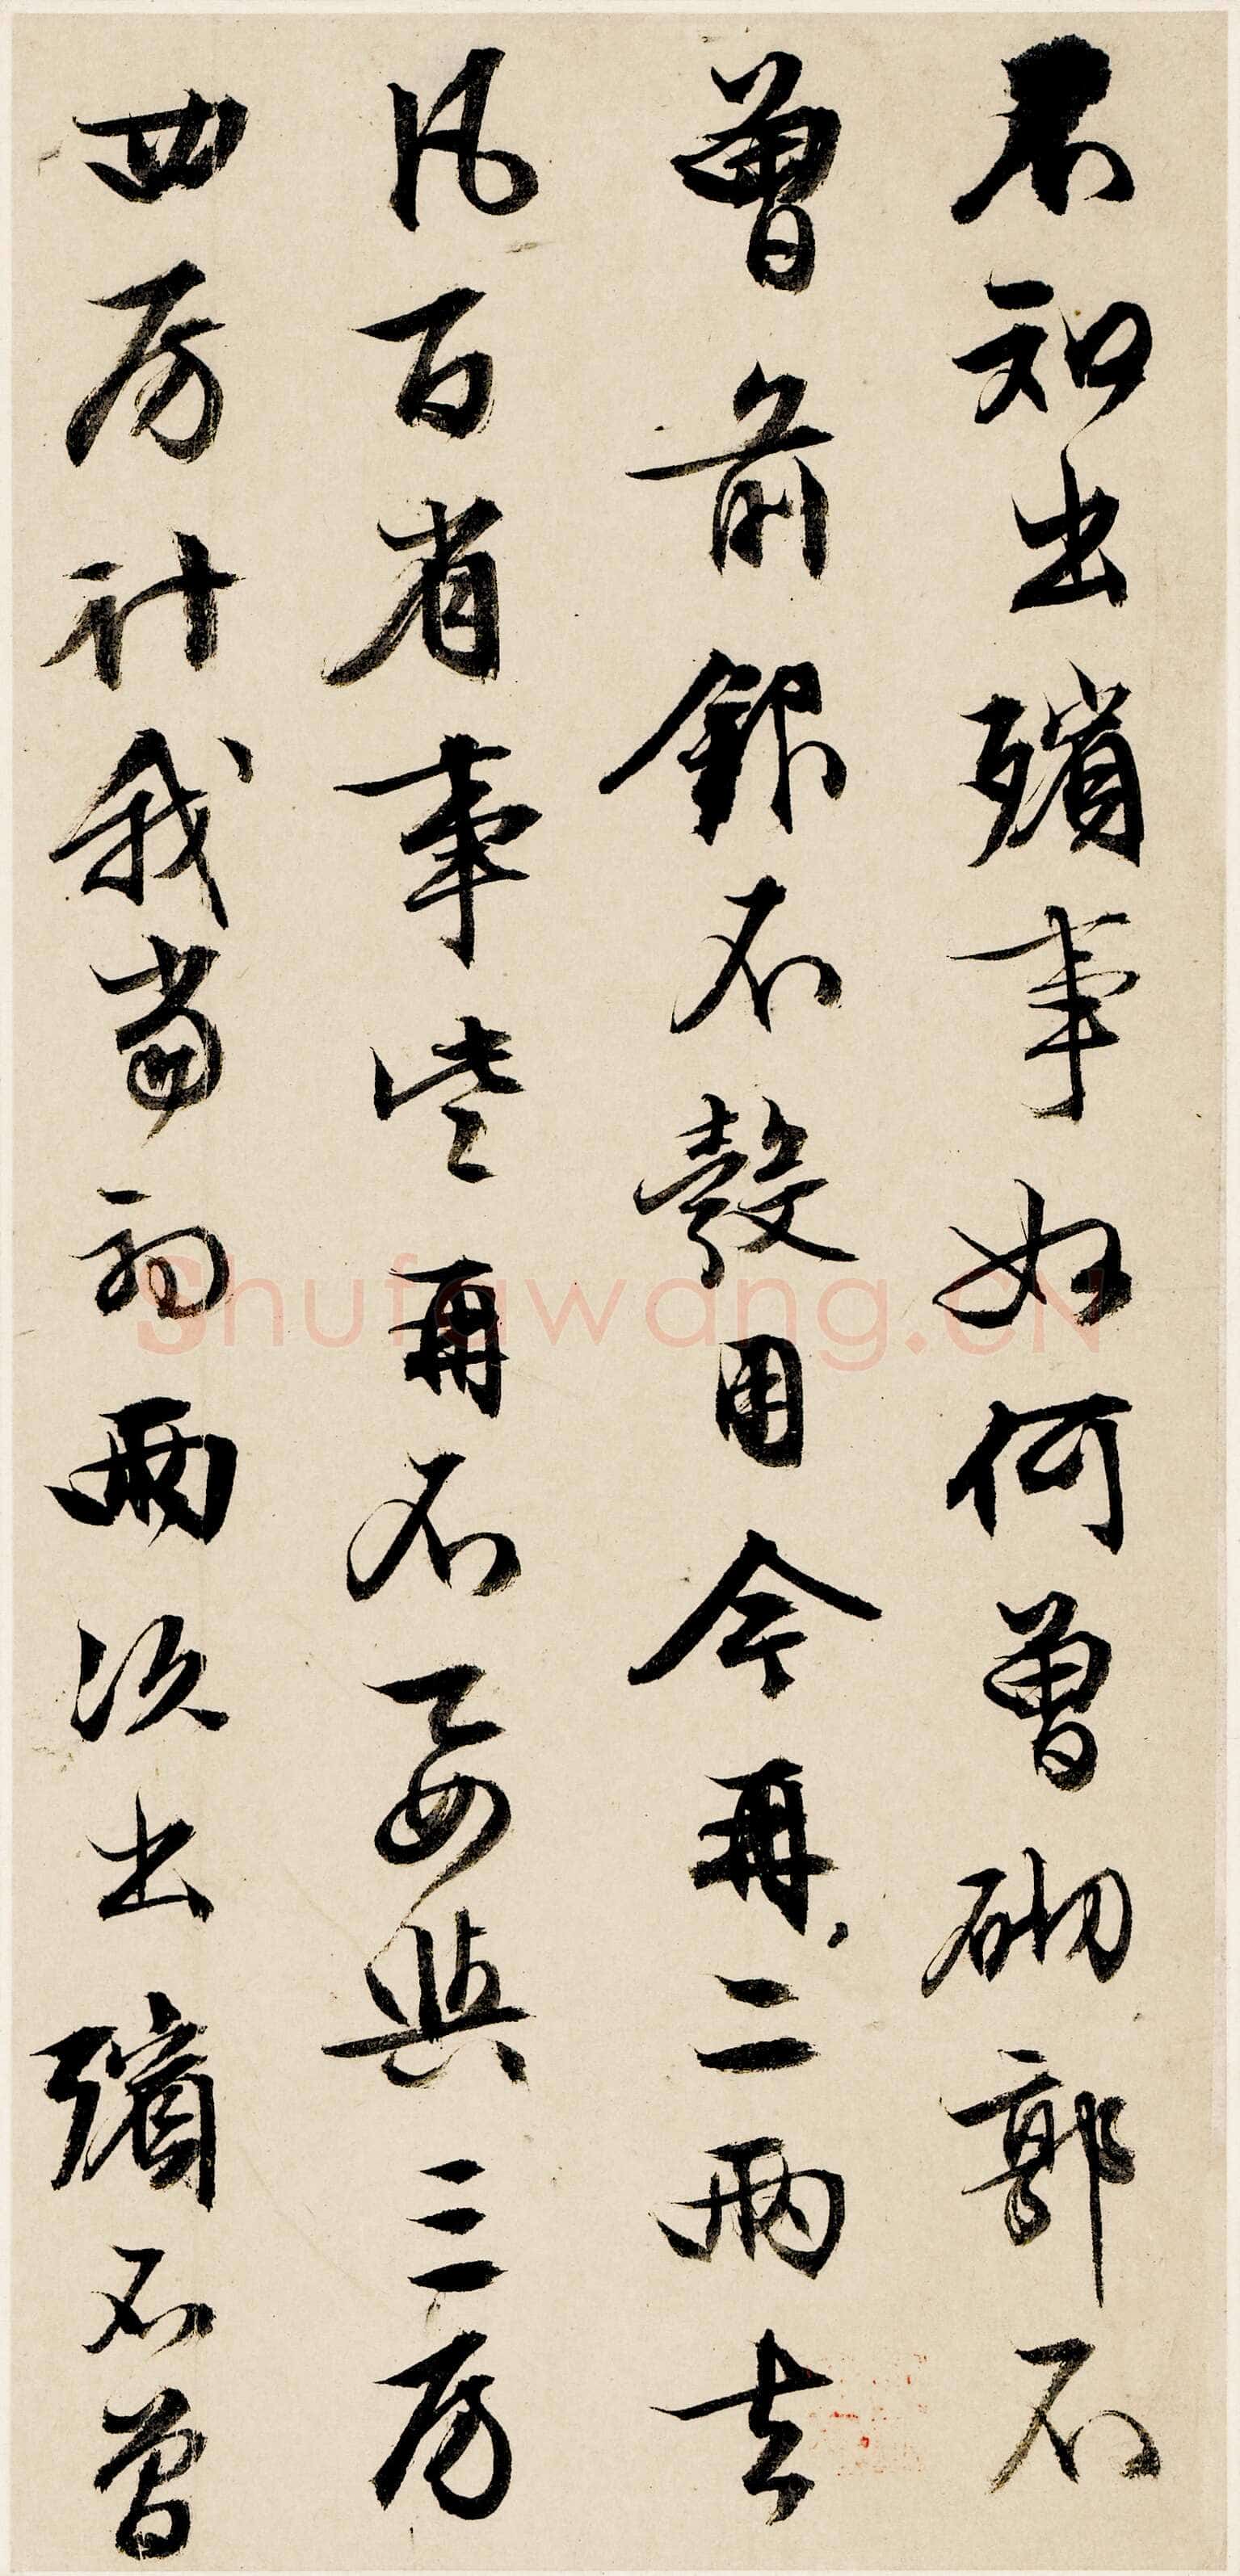 不知出殯事如何曾砌郭不
曾前銀不彀用今再二兩去
凡百省事些再不要與三房
四房計我當初兩次出殯不曾
Shufawang.CN